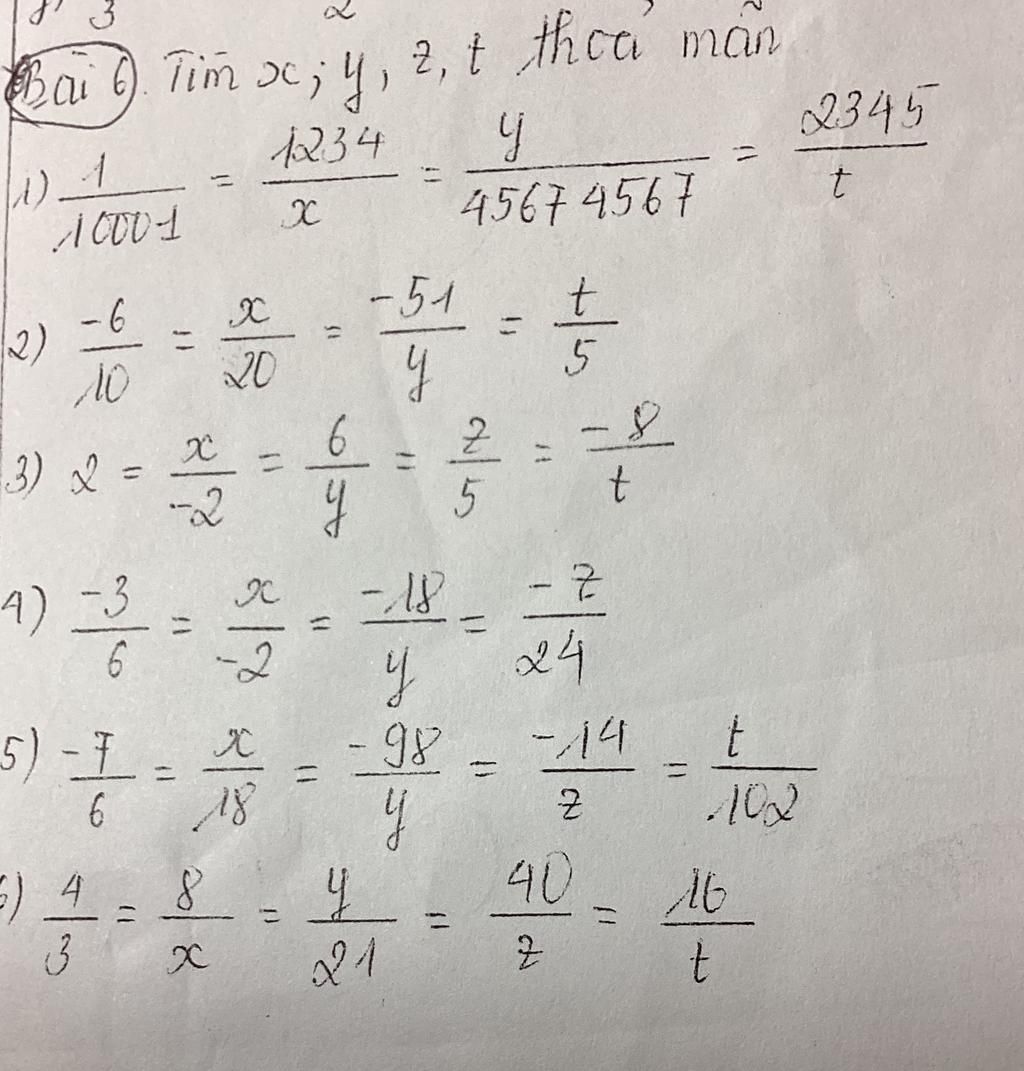 3 2
Bài 6. Tìm x; y, z, t thoả mãn
1) 1/10001 = 1234/x = y/45674567 = 2345/t
2) -6/10 = x/20 = -51/y = t/5
3) 2 = x/-2 = 6/y = z/5 = -8/t
4) -3/6 = x/-2 = -18/y = -z/24
5) -7/6 = x/18 = -98/y = -14/z = t/102
6) 4/3 = 8/x = y/21 = 40/z = 16/t